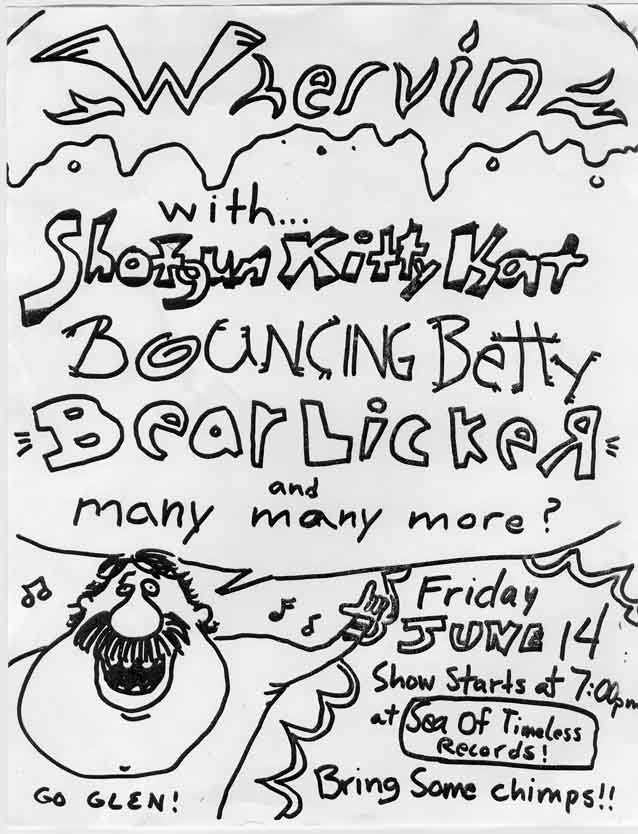 Whervin
with...
Shotgun Kitty Kat
BOUNCING Betty
Bear LickeR
and
many many more?
Friday
JUNE 14
Show Starts at 7:00pm
at Sea Of Timeless
Records!
Bring Some chimps!!
GO GLEN!